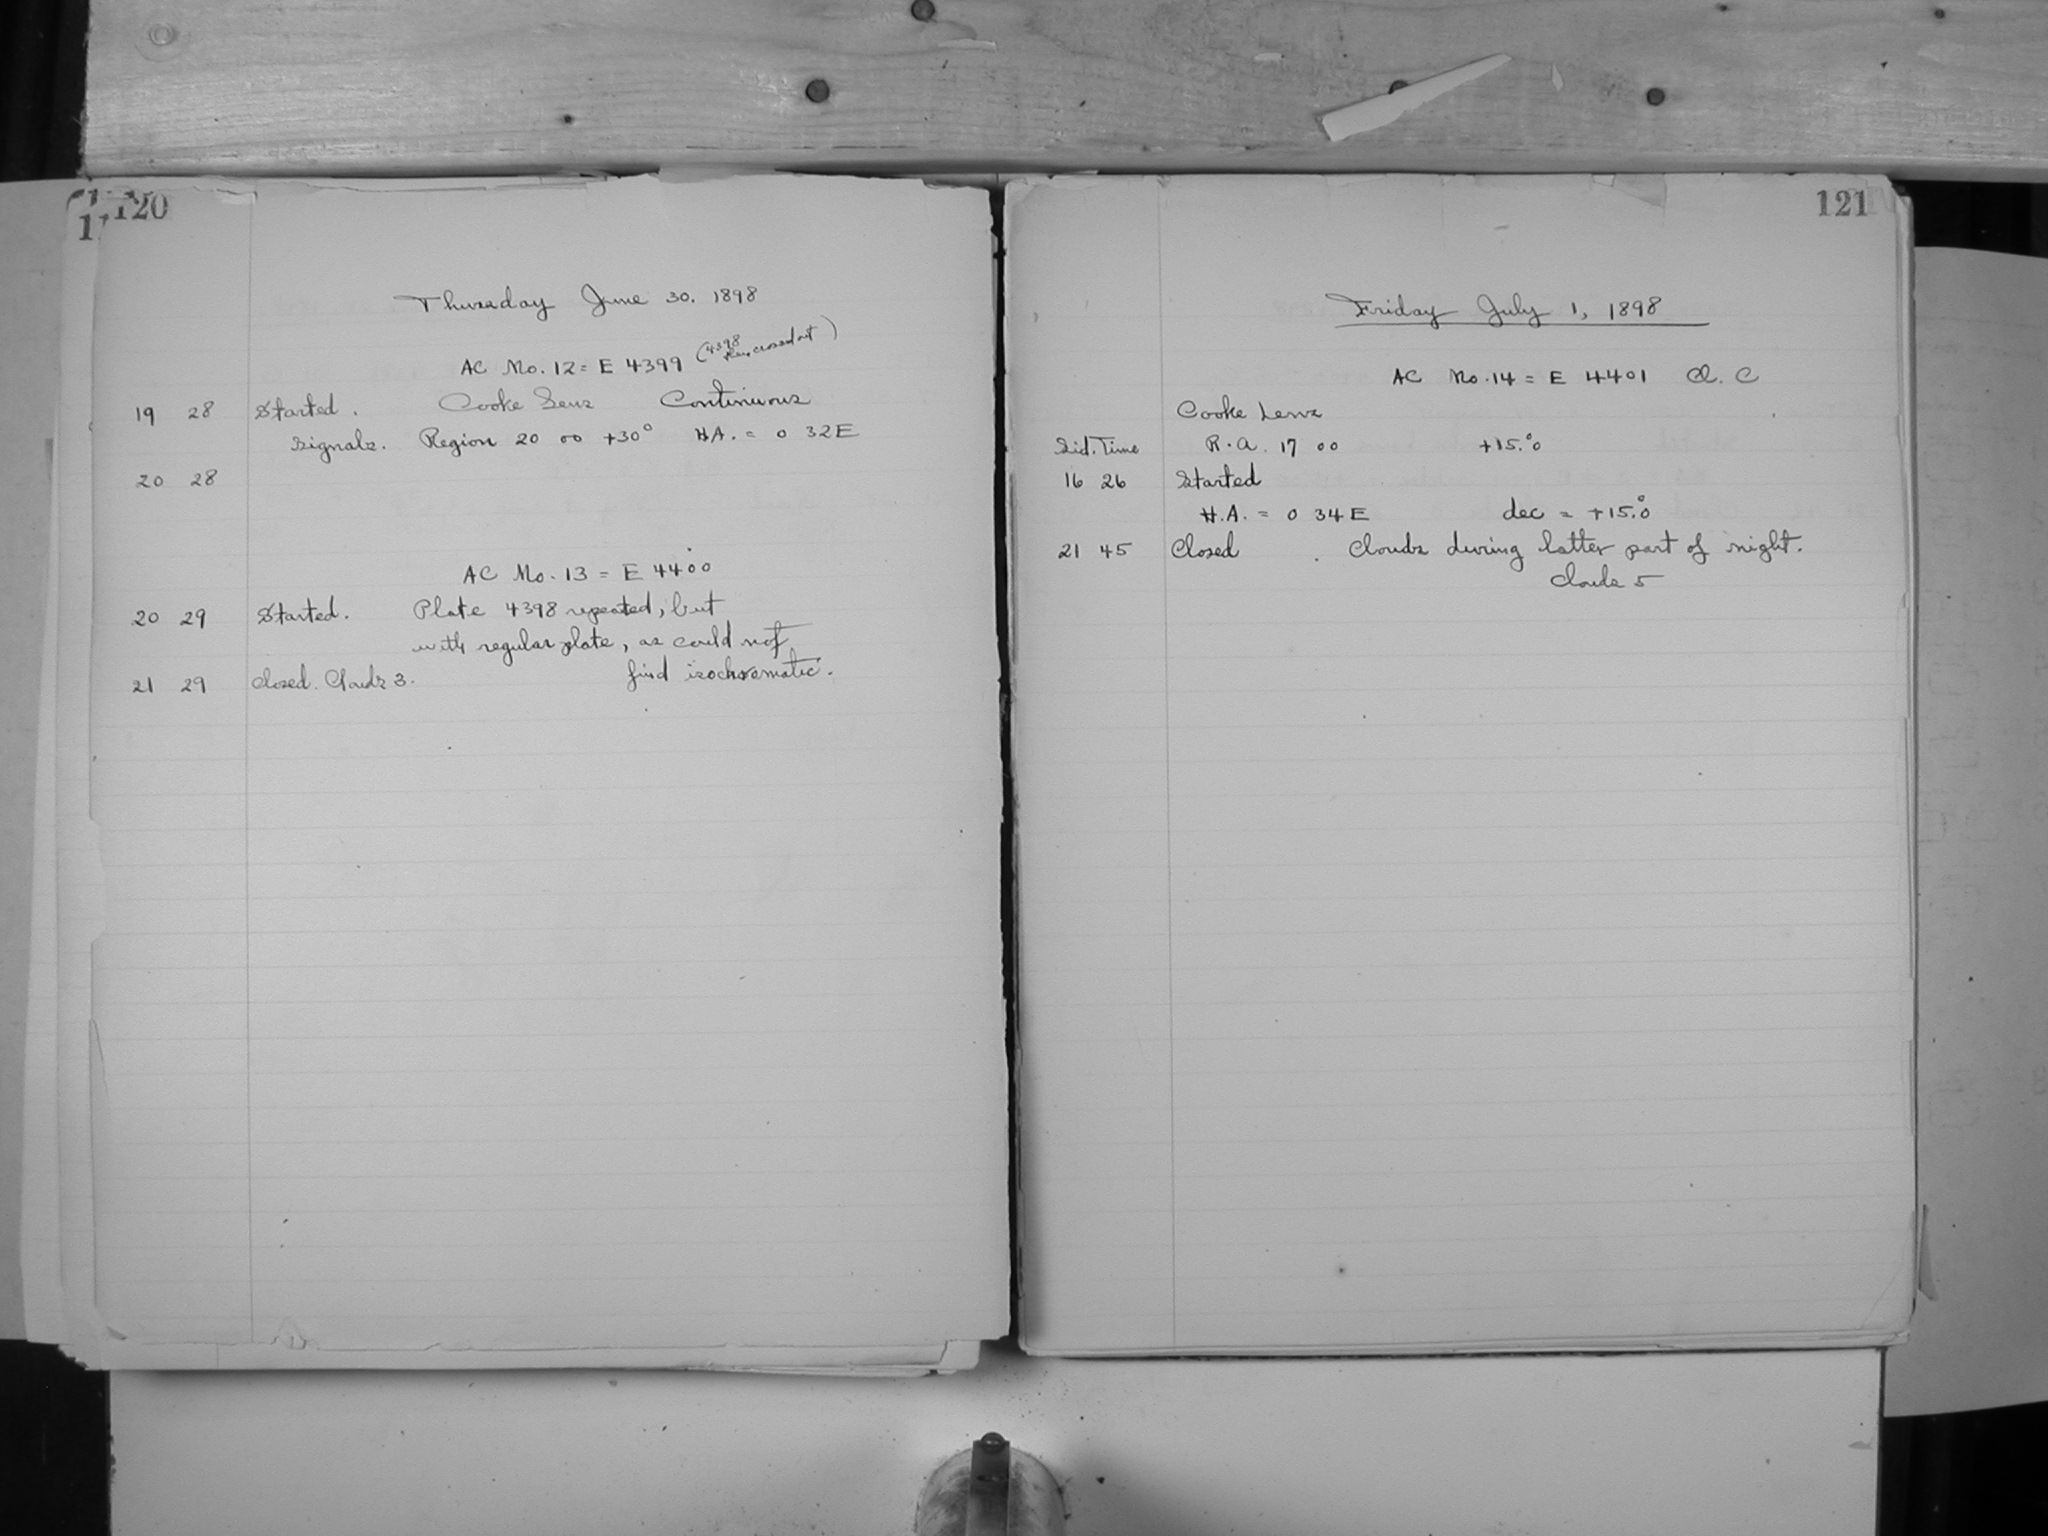 120
Thursday June 30. 1898
AC No. 12 = E 4399 (4398 crossed out)
19 28 Started. Cooke Lens Continuous
Signals. Region 20 00 +30° H.A. = 0 32 E
20 28
AC No. 13 = E 4400
20 29 Started. Plate 4398 repeated, but
with regular plate, as could not
21 29 Closed. Clouds 3. find isochromatic.
121
Friday July 1, 1898
AC No. 14 = E 4401 Cl. C
Cooke Lens
Sid. Time R.A. 17 00 +15.°0
16 26 Started
H.A. = 0 34 E dec = +15.°0
21 45 Closed . Clouds during latter part of night.
Clouds 5